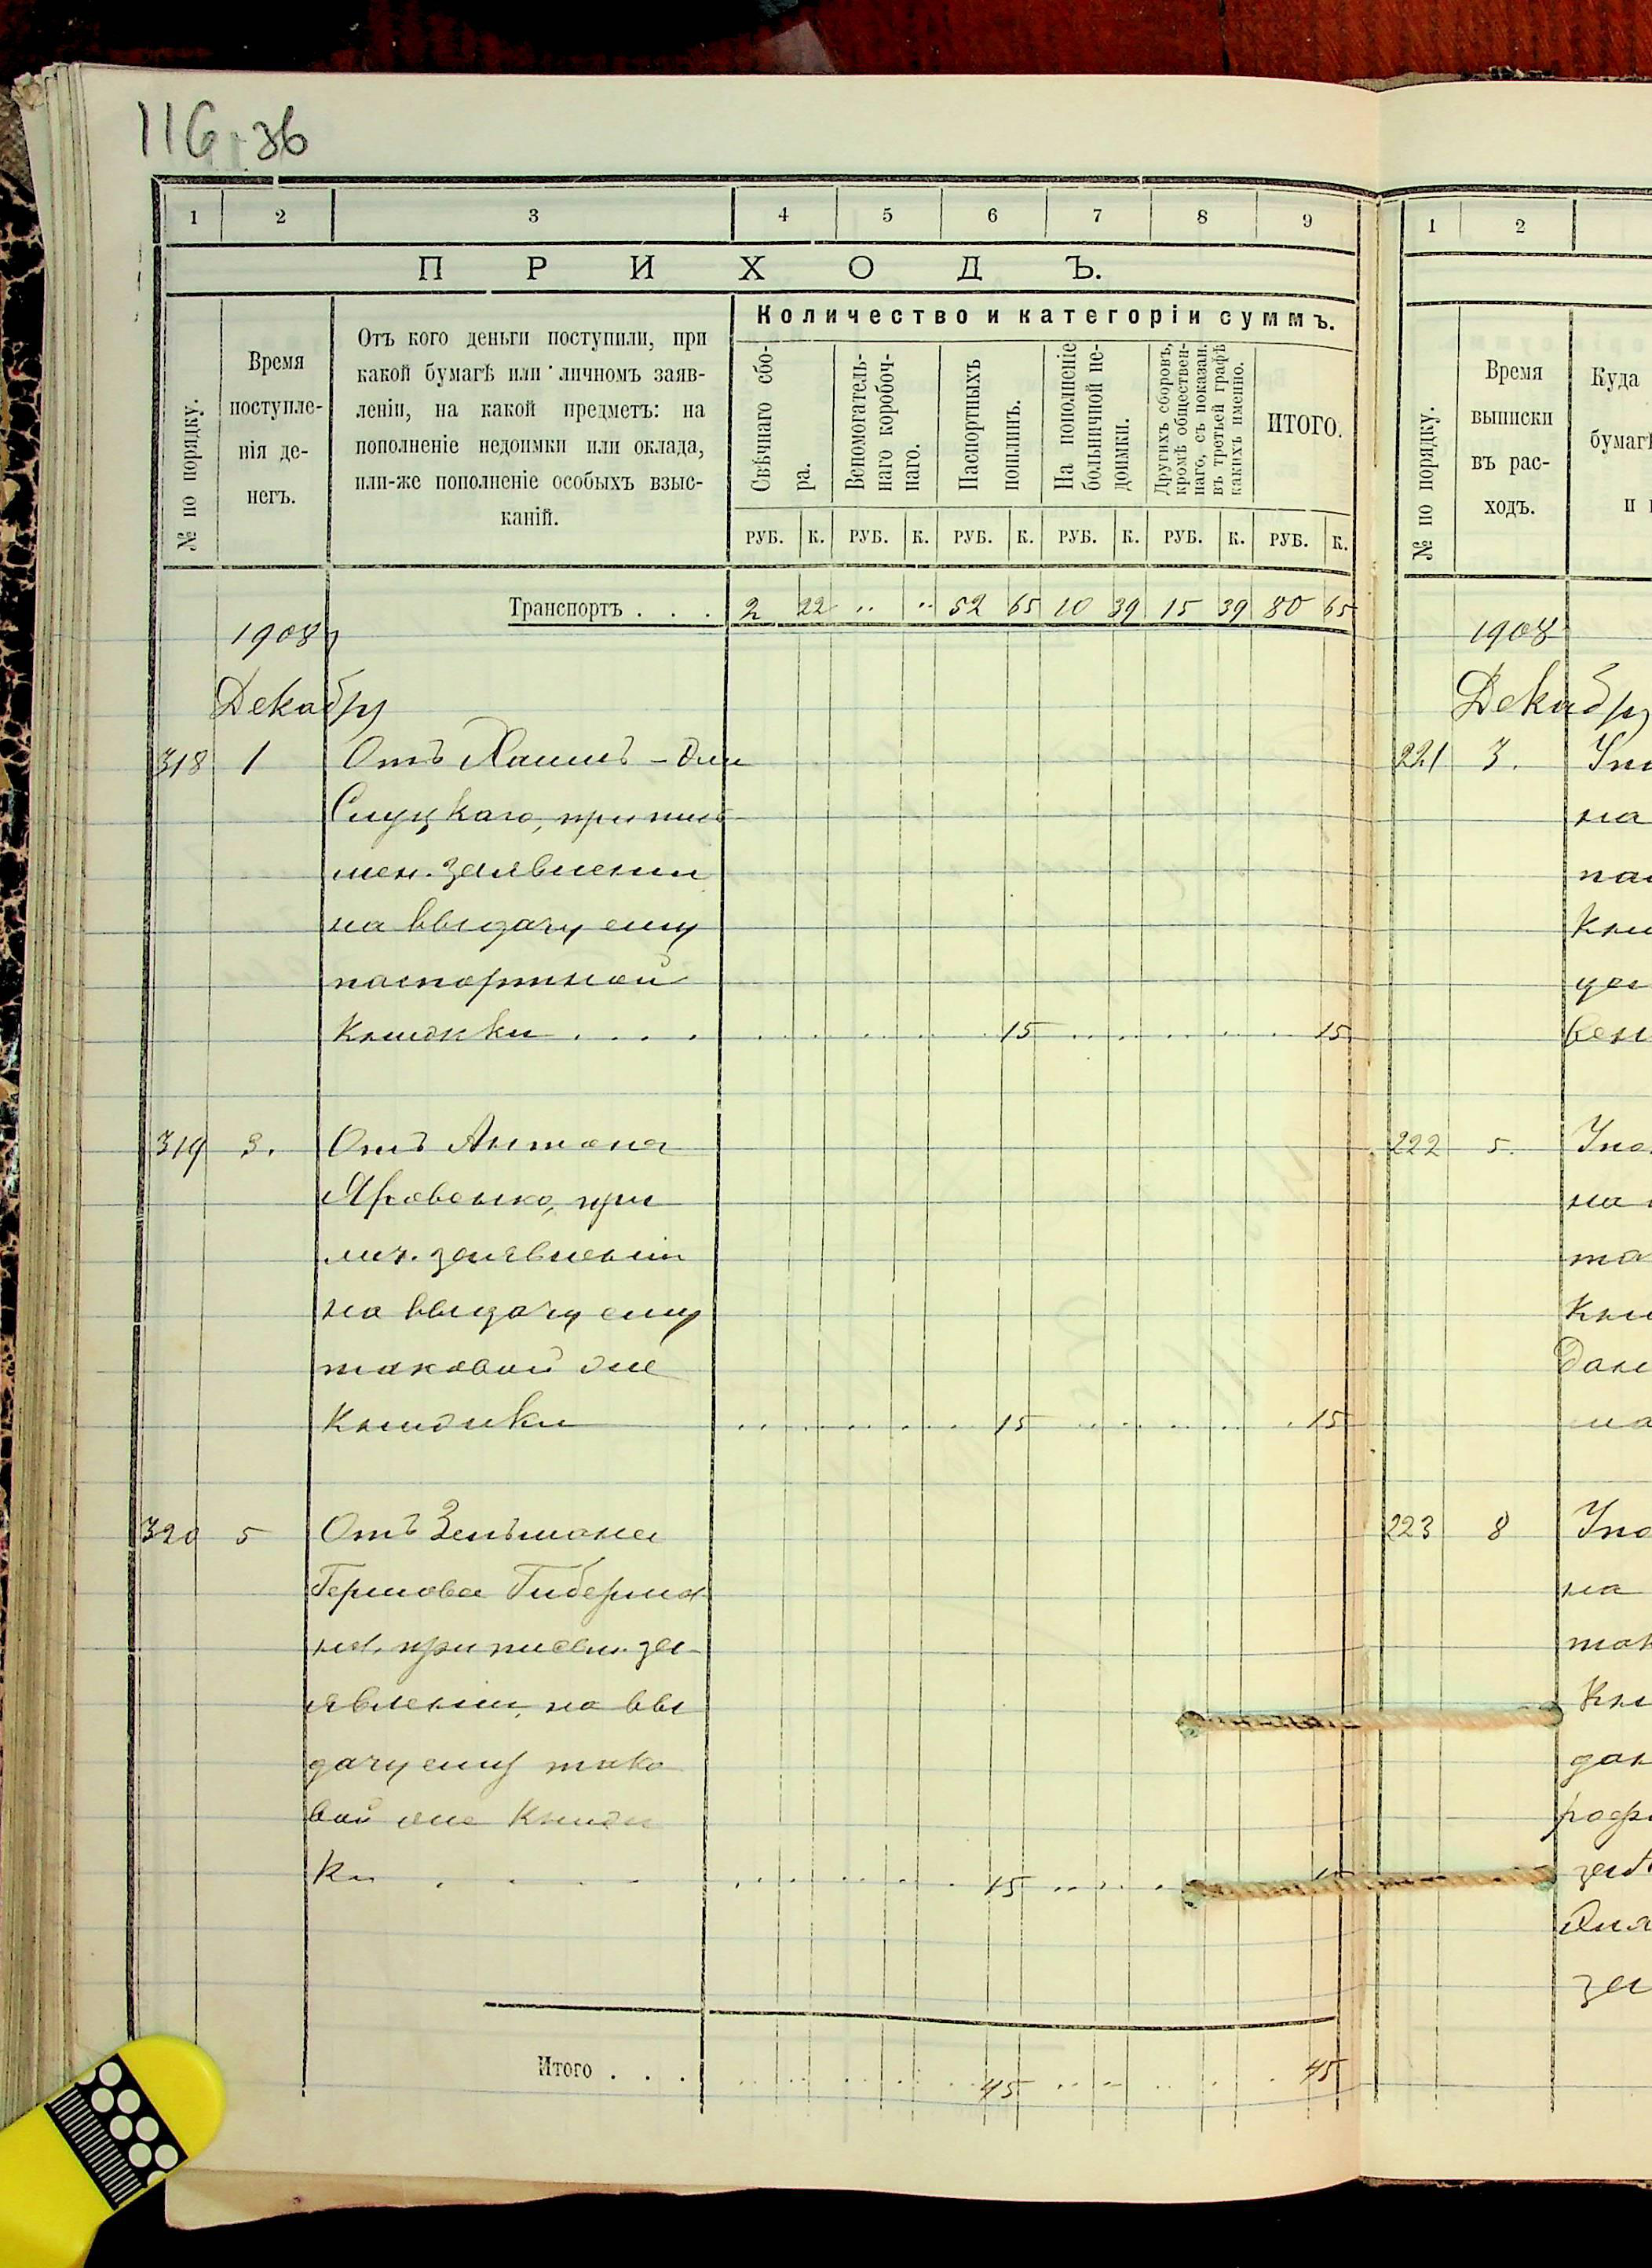 116 36
1 2 3 4 5 6 7 8 9
ПРИХОДЪ.
№ по порядку.
Время
поступле-
нія де-
негъ.
Отъ кого деньги поступили, при
какой бумагѣ или личномъ заяв-
леніи, на какой предметъ: на
пополненіе недоимки или оклада,
или-же пополненіе особыхъ взыс-
каній.
Количество и категоріи суммъ.
Свѣчнаго сбо-
ра.
Вспомогатель-
наго коробоч-
наго.
Паспортныхъ
пошлинъ.
На пополненіе
больничной не-
доимки.
Другихъ сборовъ,
кромѣ обществен-
наго, съ показан.
въ третьей графѣ
какихъ именно.
ИТОГО.
РУБ. К. РУБ. К. РУБ. К. РУБ. К. РУБ. К. РУБ. К.
Транспортъ . . . 2 22 " " 52 65 10 39 15 39 80 65
1908
Декабрь
318 1 Отъ
Слуцкаго, при пись
мен. заявленіи
на выдачу ему
паспортной
Книжки . . . . 15 15
319 3. Отъ Антона
Яковенко, при
лич. заявленіи
на выдачу ему
таковой же
Книжки 15 15
320 5 Отъ Зельмана
Гершова Гиберма
на, при письм. за
явленіи, на вы
дачу ему тако
вой же Книж
ки . . . . 15 15
Итого . . . 45 45
1 2
№ по порядку.
Время
выписки
въ рас-
ходъ.
Куда
бумаг
и
1908
Декабрь
221 3.
на
222 5.
на
223 8
на